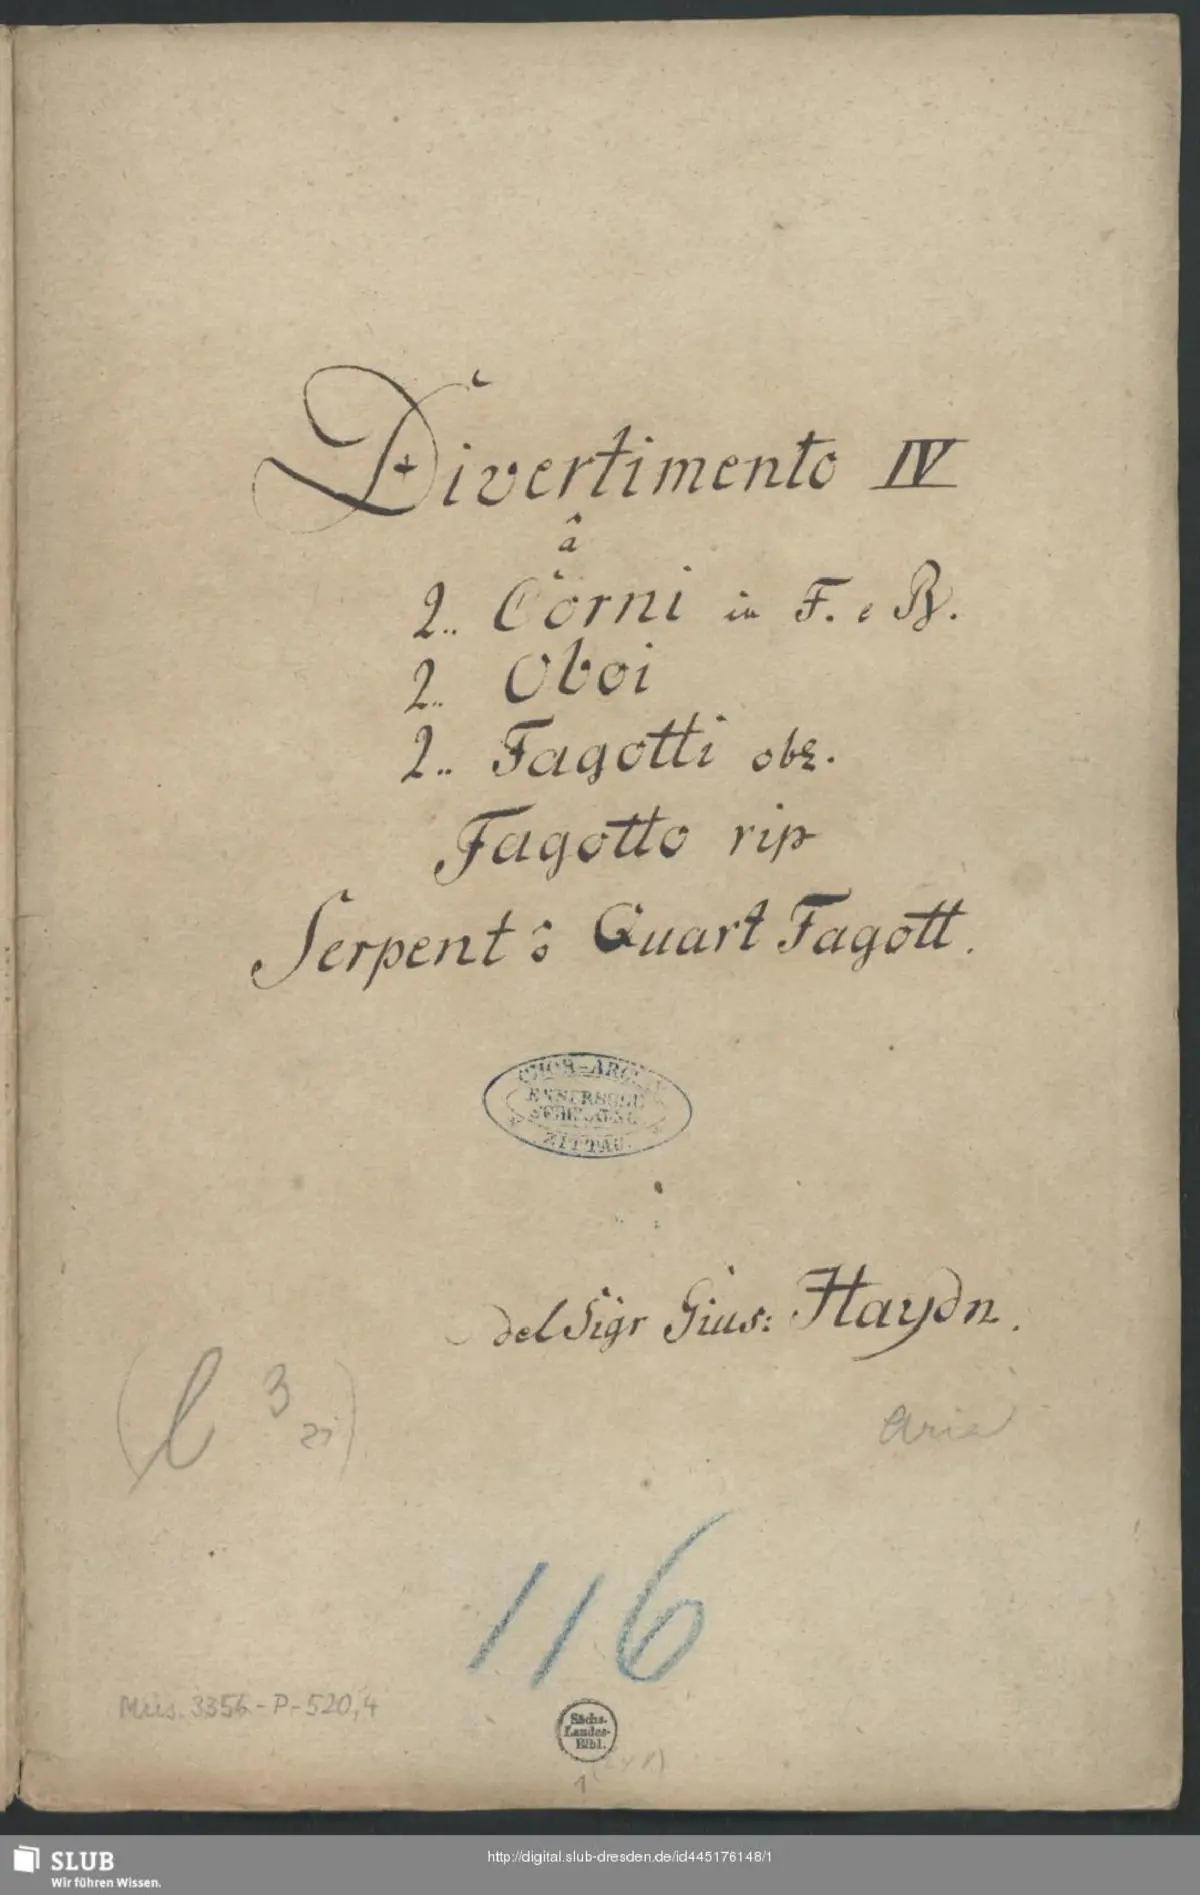 Divertimento IV
â
2.. Corni in F. e B.
2.. Oboi
2.. Fagotti obl.
Fagotto rip
Serpent ô Quart Fagott.
CHOR-ARCHIV
ZITTAU.
del Sigr Gius: Haydn.
(l 3
21)
Aria
116
Mus. 3356-P-520,4
Sächs.
Landes-
Bibl.
1
SLUB
Wir führen Wissen.
http://digital.slub-dresden.de/id445176148/1